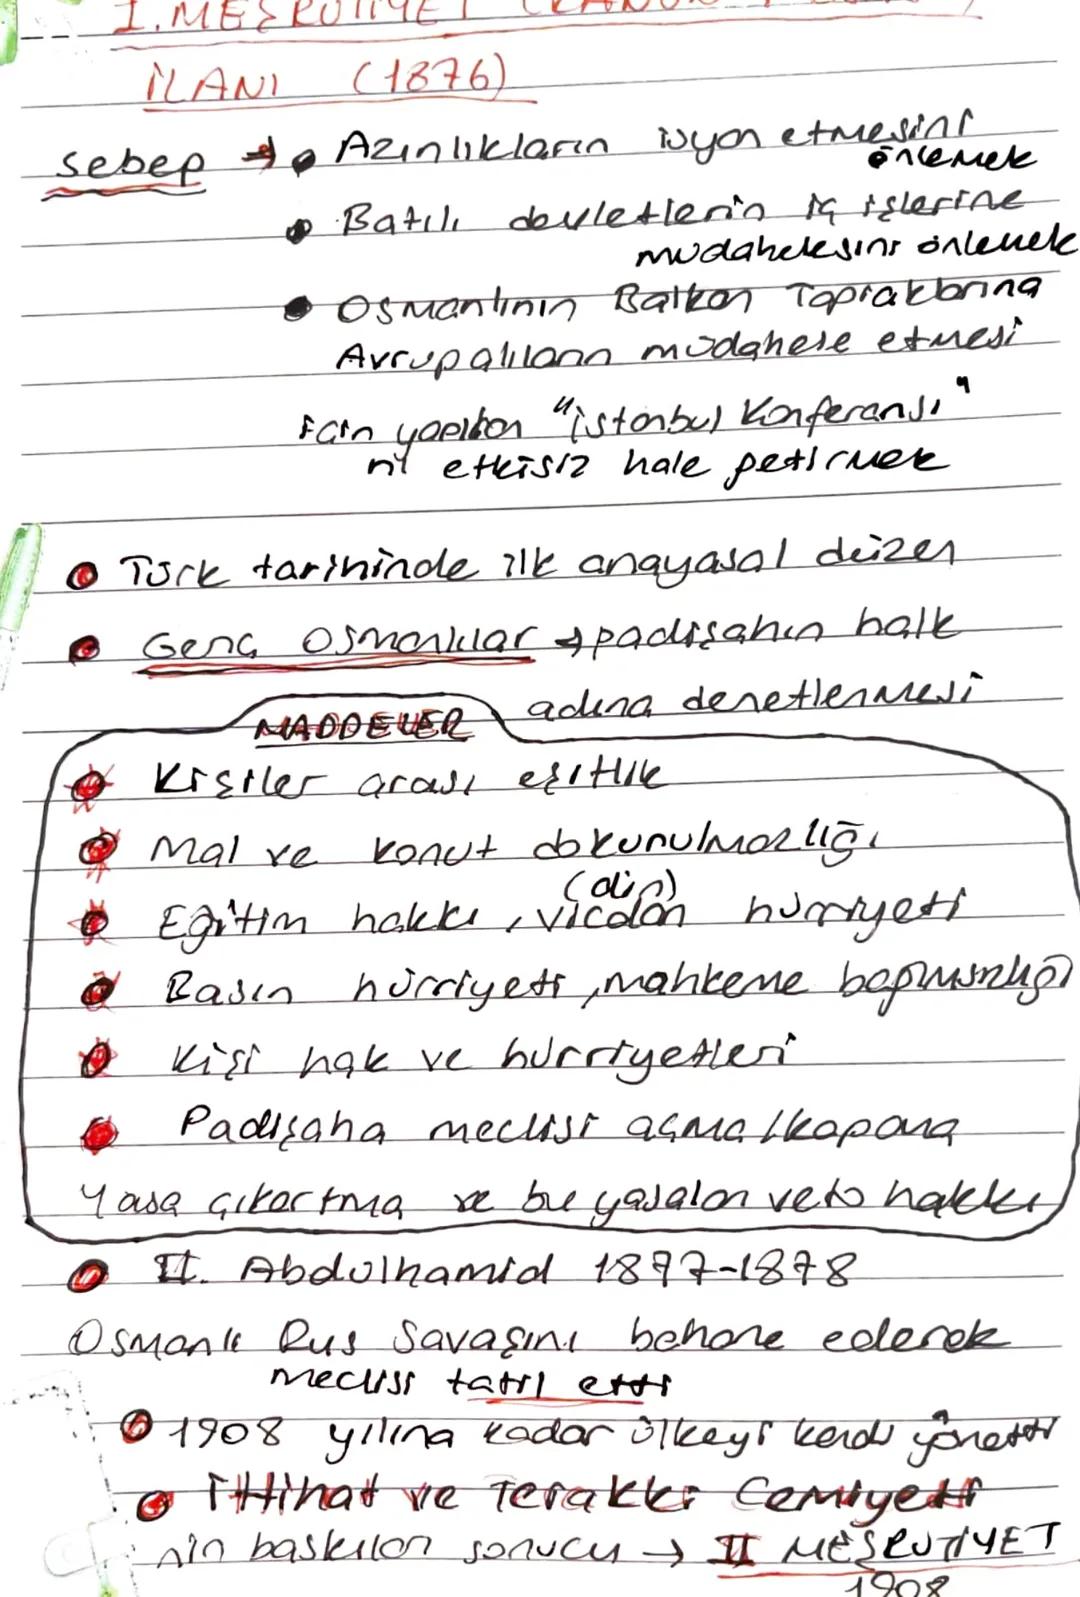 I. MEŞRUTİYET (KANUN
İLANI (1876)
Sebep → • Azınlıkların isyan etmesini
önlemek
• Batılı devletlerin iç işlerine
mudahelesini önlemek
• Osmanlının Balkan Topraklarına
Avrupalıların müdahele etmesi
için yapılan "istanbul Konferansı"
nı etkisiz hale getirmek
• Türk tarihinde ilk anayasal düzen
• Genç Osmanlılar → padişahın halk
adına denetlenmesi
MADDELER
• Kişiler arası eşitlik
• Mal ve konut dokunulmazlığı
(din)
• Eğitim hakkı, vicdan hürriyeti
• Basın hürriyeti, mahkeme bağımsızlığı
• Kişi hak ve hürriyetleri
• Padişaha meclisi açma/kapama
Yasa çıkartma ve bu yasaları veto hakkı
• II. Abdülhamid 1877-1878
Osmanlı Rus Savaşını bahane ederek
meclisi tatil etti
• 1908 yılına kadar ülkeyi kendi yönetti
• ittihat ve Terakki Cemiyeti
nin baskıları sonucu → II MEŞRUTİYET
1908